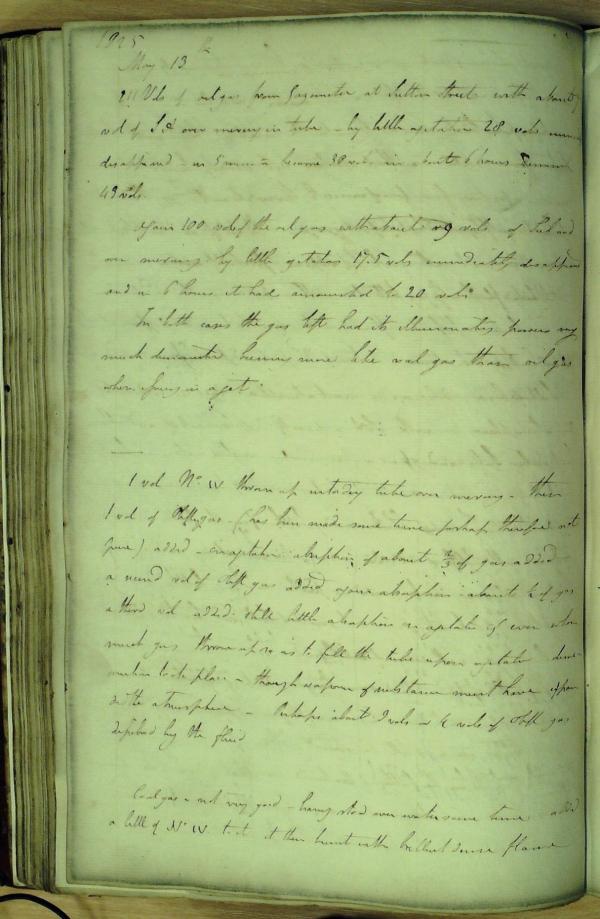 1825
May 13th
211 Vols of oil gas from Gazometer at Sutton Street with about
vol of S A over mercury in tube - by little agitation 28 vols
disappeared - in 5 min became 38 vols in about 6 hours
49 vols.
Again 100 vols of the oil gas with about 9 vols of
over mercury by little agitation 17.5 vols immediately disappeared
and in 6 hours it had amounted to 20 vols
In both cases the gas left had its illuminating powers very
much diminished burning more like coal gas than oil gas
when in a jet.
1 vol No IV thrown up into dry tube over mercury - then
1 vol of Olefgas - (has been made some time perhaps therefore not
pure) added - on agitation absorption of about 2/3 of gas added
a second vol of Olef gas added again absorption about 1/2 of gas
a third vol added still little absorption on agitation even when
much gas thrown up so as to fill the tube upon agitation
took place - though vapour of substance must have
in the atmosphere - Perhaps about 2 vols of Olef gas
by the fluid
Coal gas - not very good - having stood over water some time added
a little of No IV to it it then burnt with brilliant dense flame